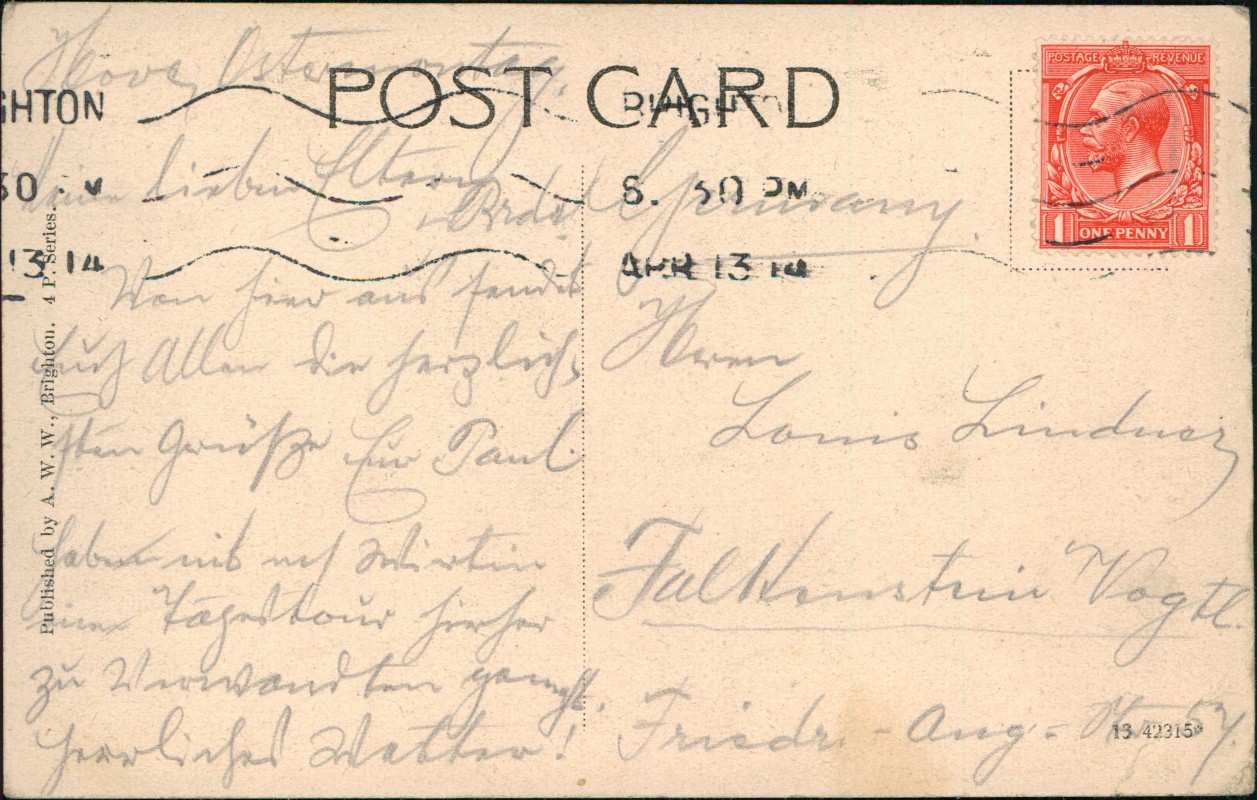 POST CARD
POSTAGE REVENUE
1 ONE PENNY 1
GHTON
30 M
13 14
BRIGHTON
6. 30 PM
APR 13 14
Published by A. W. W., Brighton. 4 P. Series.
Hove, Ostermontag.
Meine lieben Eltern
u. Brdr.
Von hier aus sendet
Euch Allen die herzlich
sten Grüße Euer Paul.
haben mit
Wirtin
eine Tagestour hierher
zu Verwandten gemacht.
herrliches Wetter!
Germany.
Herrn
Louis Lindner
Falkenstein Vogtl.
Friedr.-Aug.-Str. 57.
13 42315